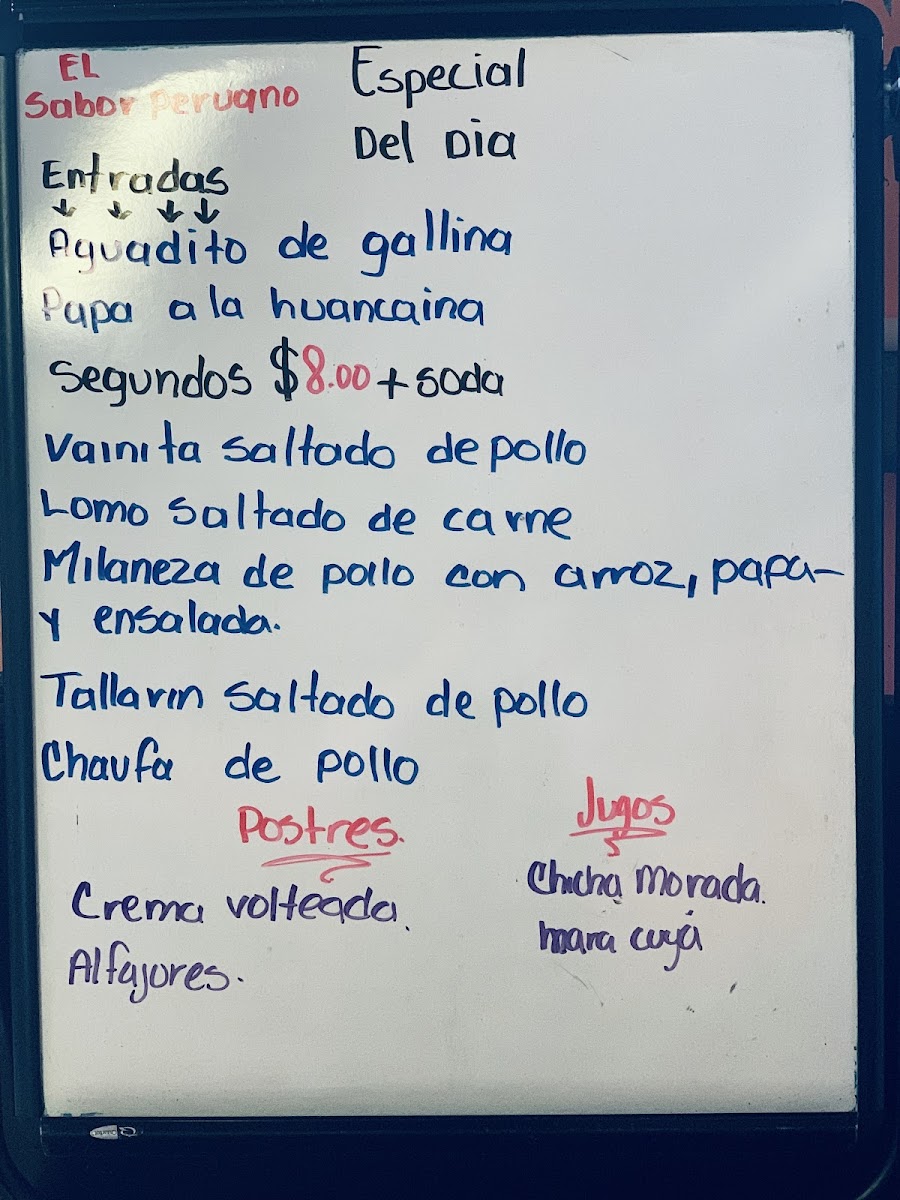 EL
Sabor Peruano
Especial
Del Dia
Entradas
Aguadito de gallina
Papa a la huancaina
Segundos $8.00 + soda
Vainita saltado de pollo
Lomo saltado de carne
Milaneza de pollo con arroz, papa-
y ensalada.
Tallarin saltado de pollo
Chaufa de pollo
Postres.
Crema volteada.
Alfajores.
Jugos
Chicha morada.
mara cuyá